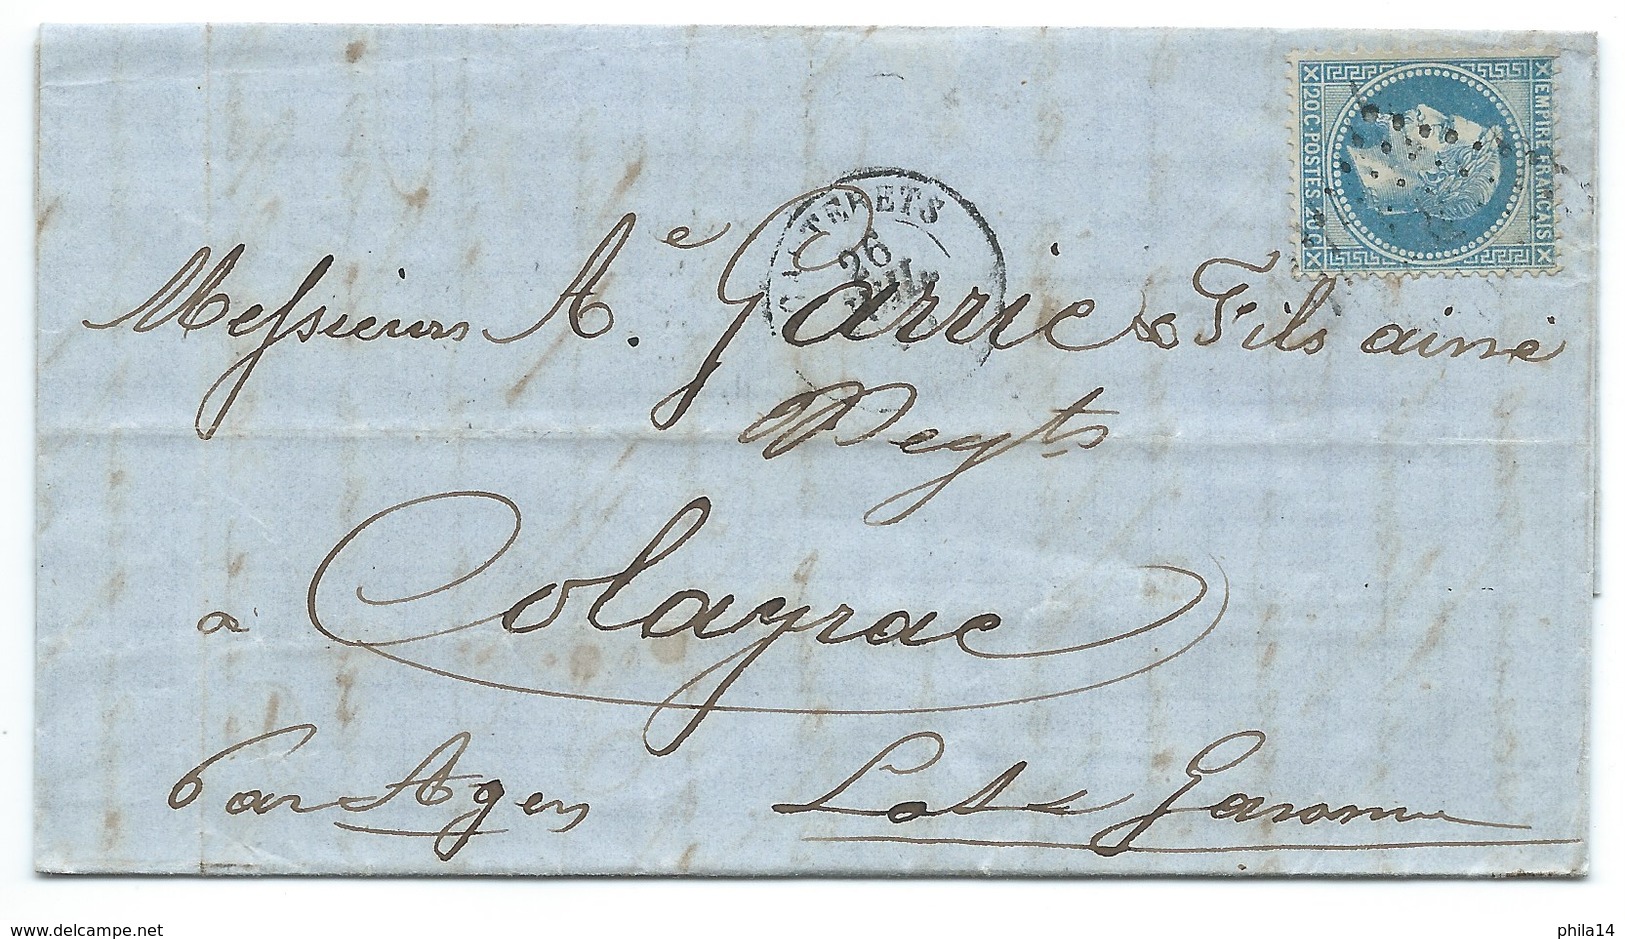 EMPIRE FRANÇAIS
20 C · POSTES 20 C
CAUTERETS
26
JUIL
Messieurs A. Garric & Fils ainé
à Colayrac
Par Agen Lot & Garonne
www.delcampe.net
phila14